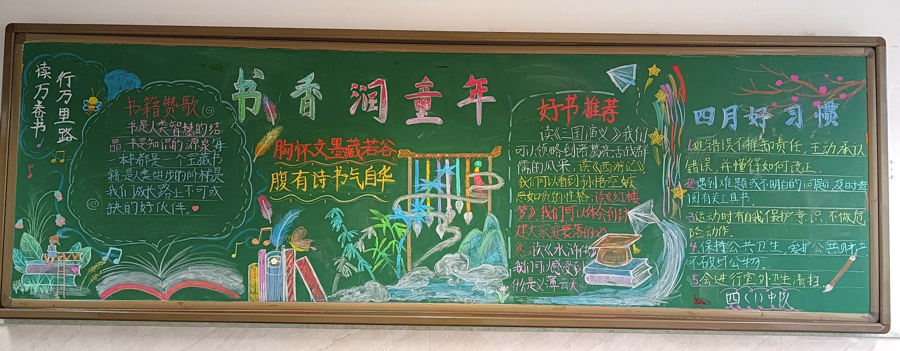 读万卷书
行万里路
书香润童年
书籍赞歌
书是人类智慧的结
晶,书是知识的源泉,每
本都是一个宝藏书
籍是人类进步的阶梯是
我们成长路上不可或
缺的好伙伴。
胸怀文墨藏若谷
腹有诗书气自华
好书推荐
读《三国演义》我们
可以领略到诸葛亮舌战群
儒的风采,读《西游记》
我们可以看到孙悟空嫉
恶如仇的性格,读《红楼
梦》我们可以体会到封
建大家庭衰落的
读《水浒传
我们可感受到
什么是义薄云天
四月好习惯
1.犯错误不推卸责任,主动承认
错误,并懂得如何改正
2.遇到难题或不明白的问题及时查
阅有关工具书
3.运动时有自我保护意识,不做危
险动作。
4.保持公共卫生,爱护公共财产
不破坏公物
5.会进行室外卫生清扫
四(1)中队